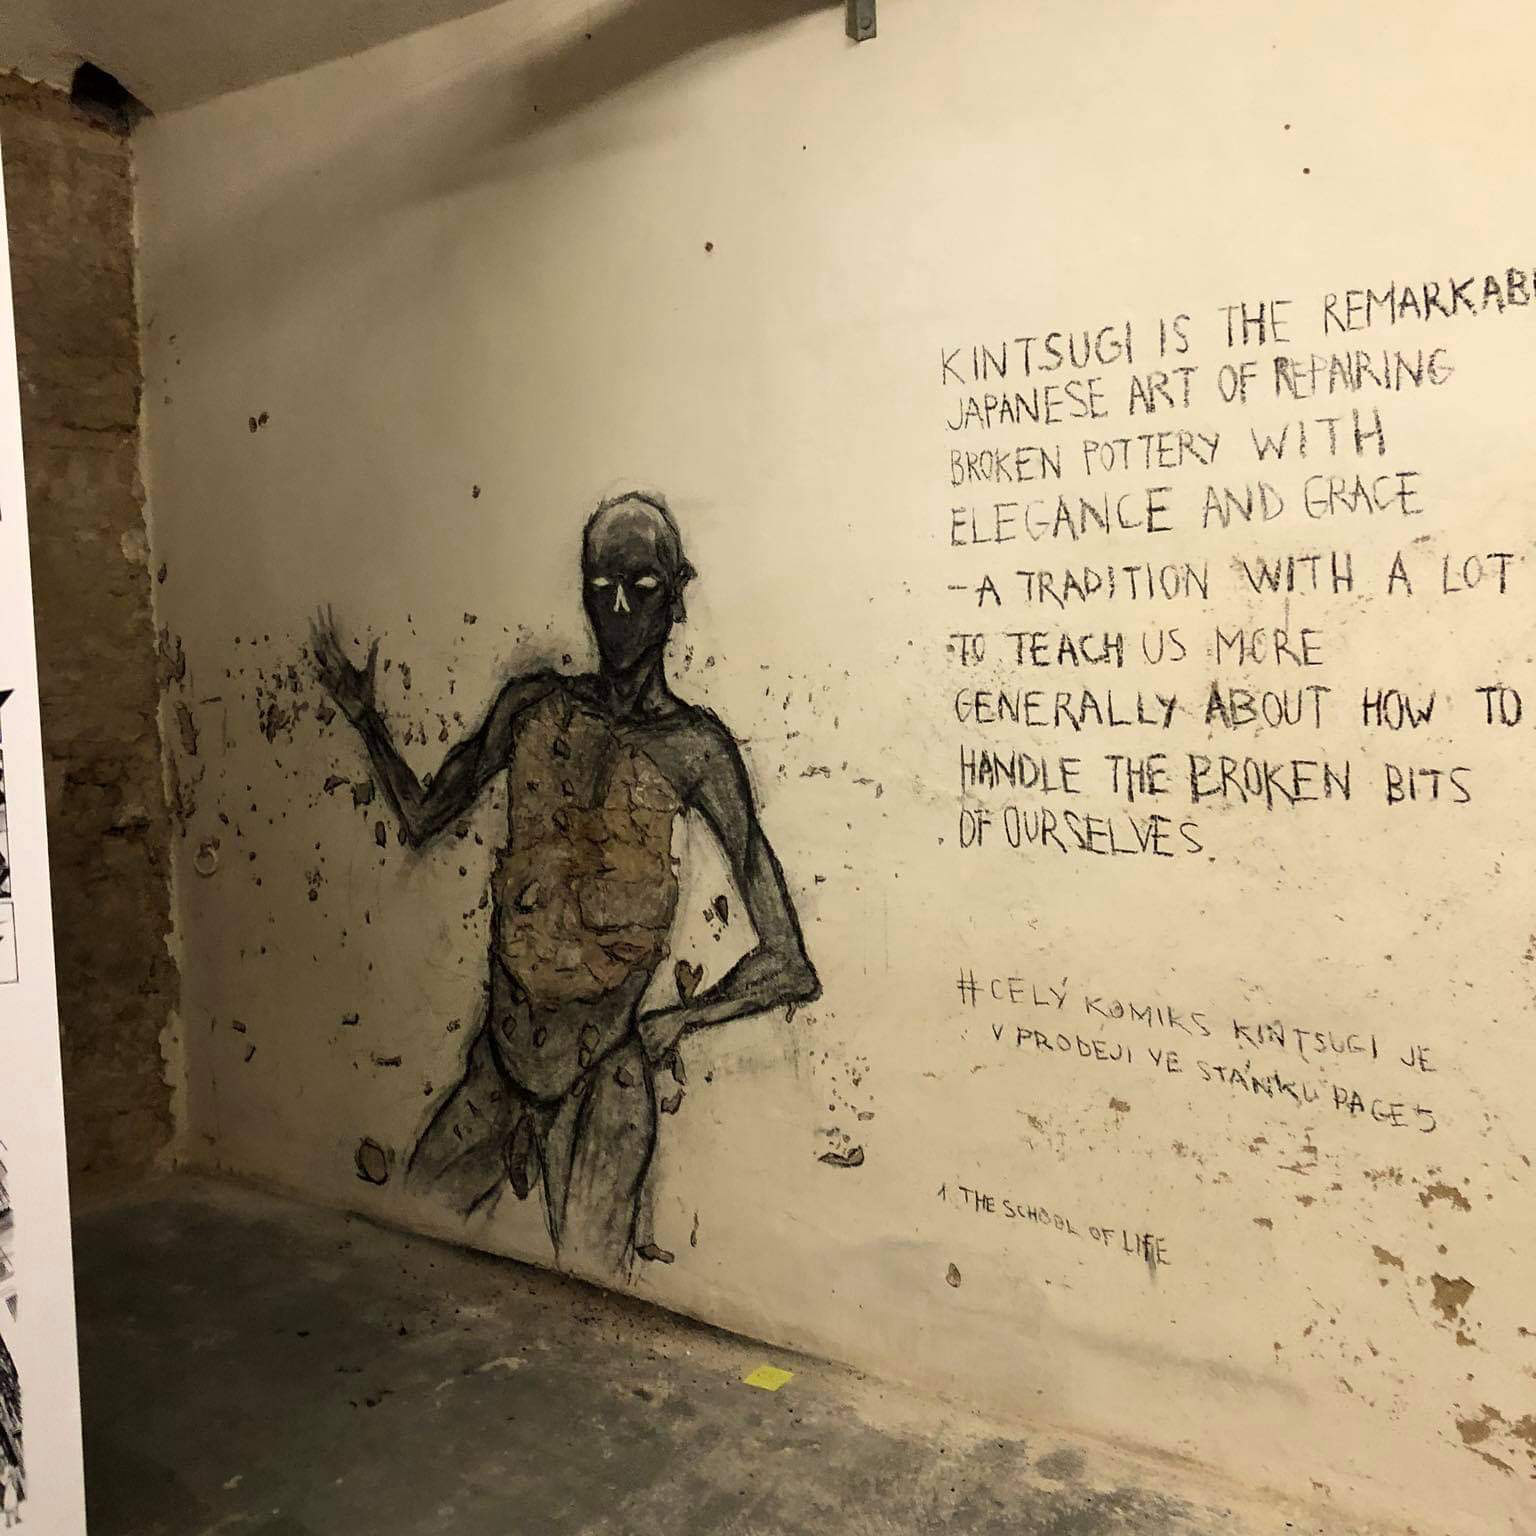 KINTSUGI IS THE REMARKAB
JAPANESE ART OF REPAIRING
BROKEN POTTERY WITH
ELEGANCE AND GRACE
-A TRADITION WITH A LOT
TO TEACH US MORE
GENERALLY ABOUT HOW TO
HANDLE THE BROKEN BITS
OF OURSELVES.
#CELÝ KOMIKS KINTSUGI JE
V PRODEJI VE STÁNKU PAGE 5
1. THE SCHOOL OF LIFE